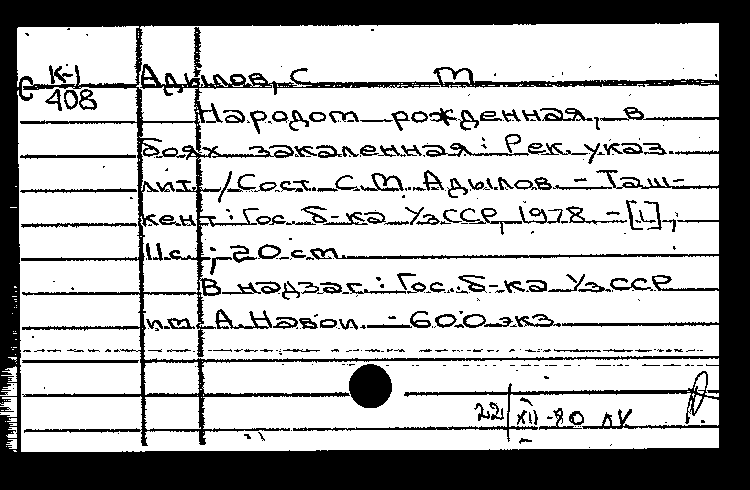 К-1 Адылов, С М
е 408
Народом рожденная, в
боях закаленная: Рек. указ.
лит. / Сост. С.М. Адылов. - Таш-
кент: Гос. б-ка УзССР, 1978. - [1],
11с.; 20 см.
В надзаг.: Гос. б-ка УзССР
им. А. Навои. - 600 экз.
22/XII-80